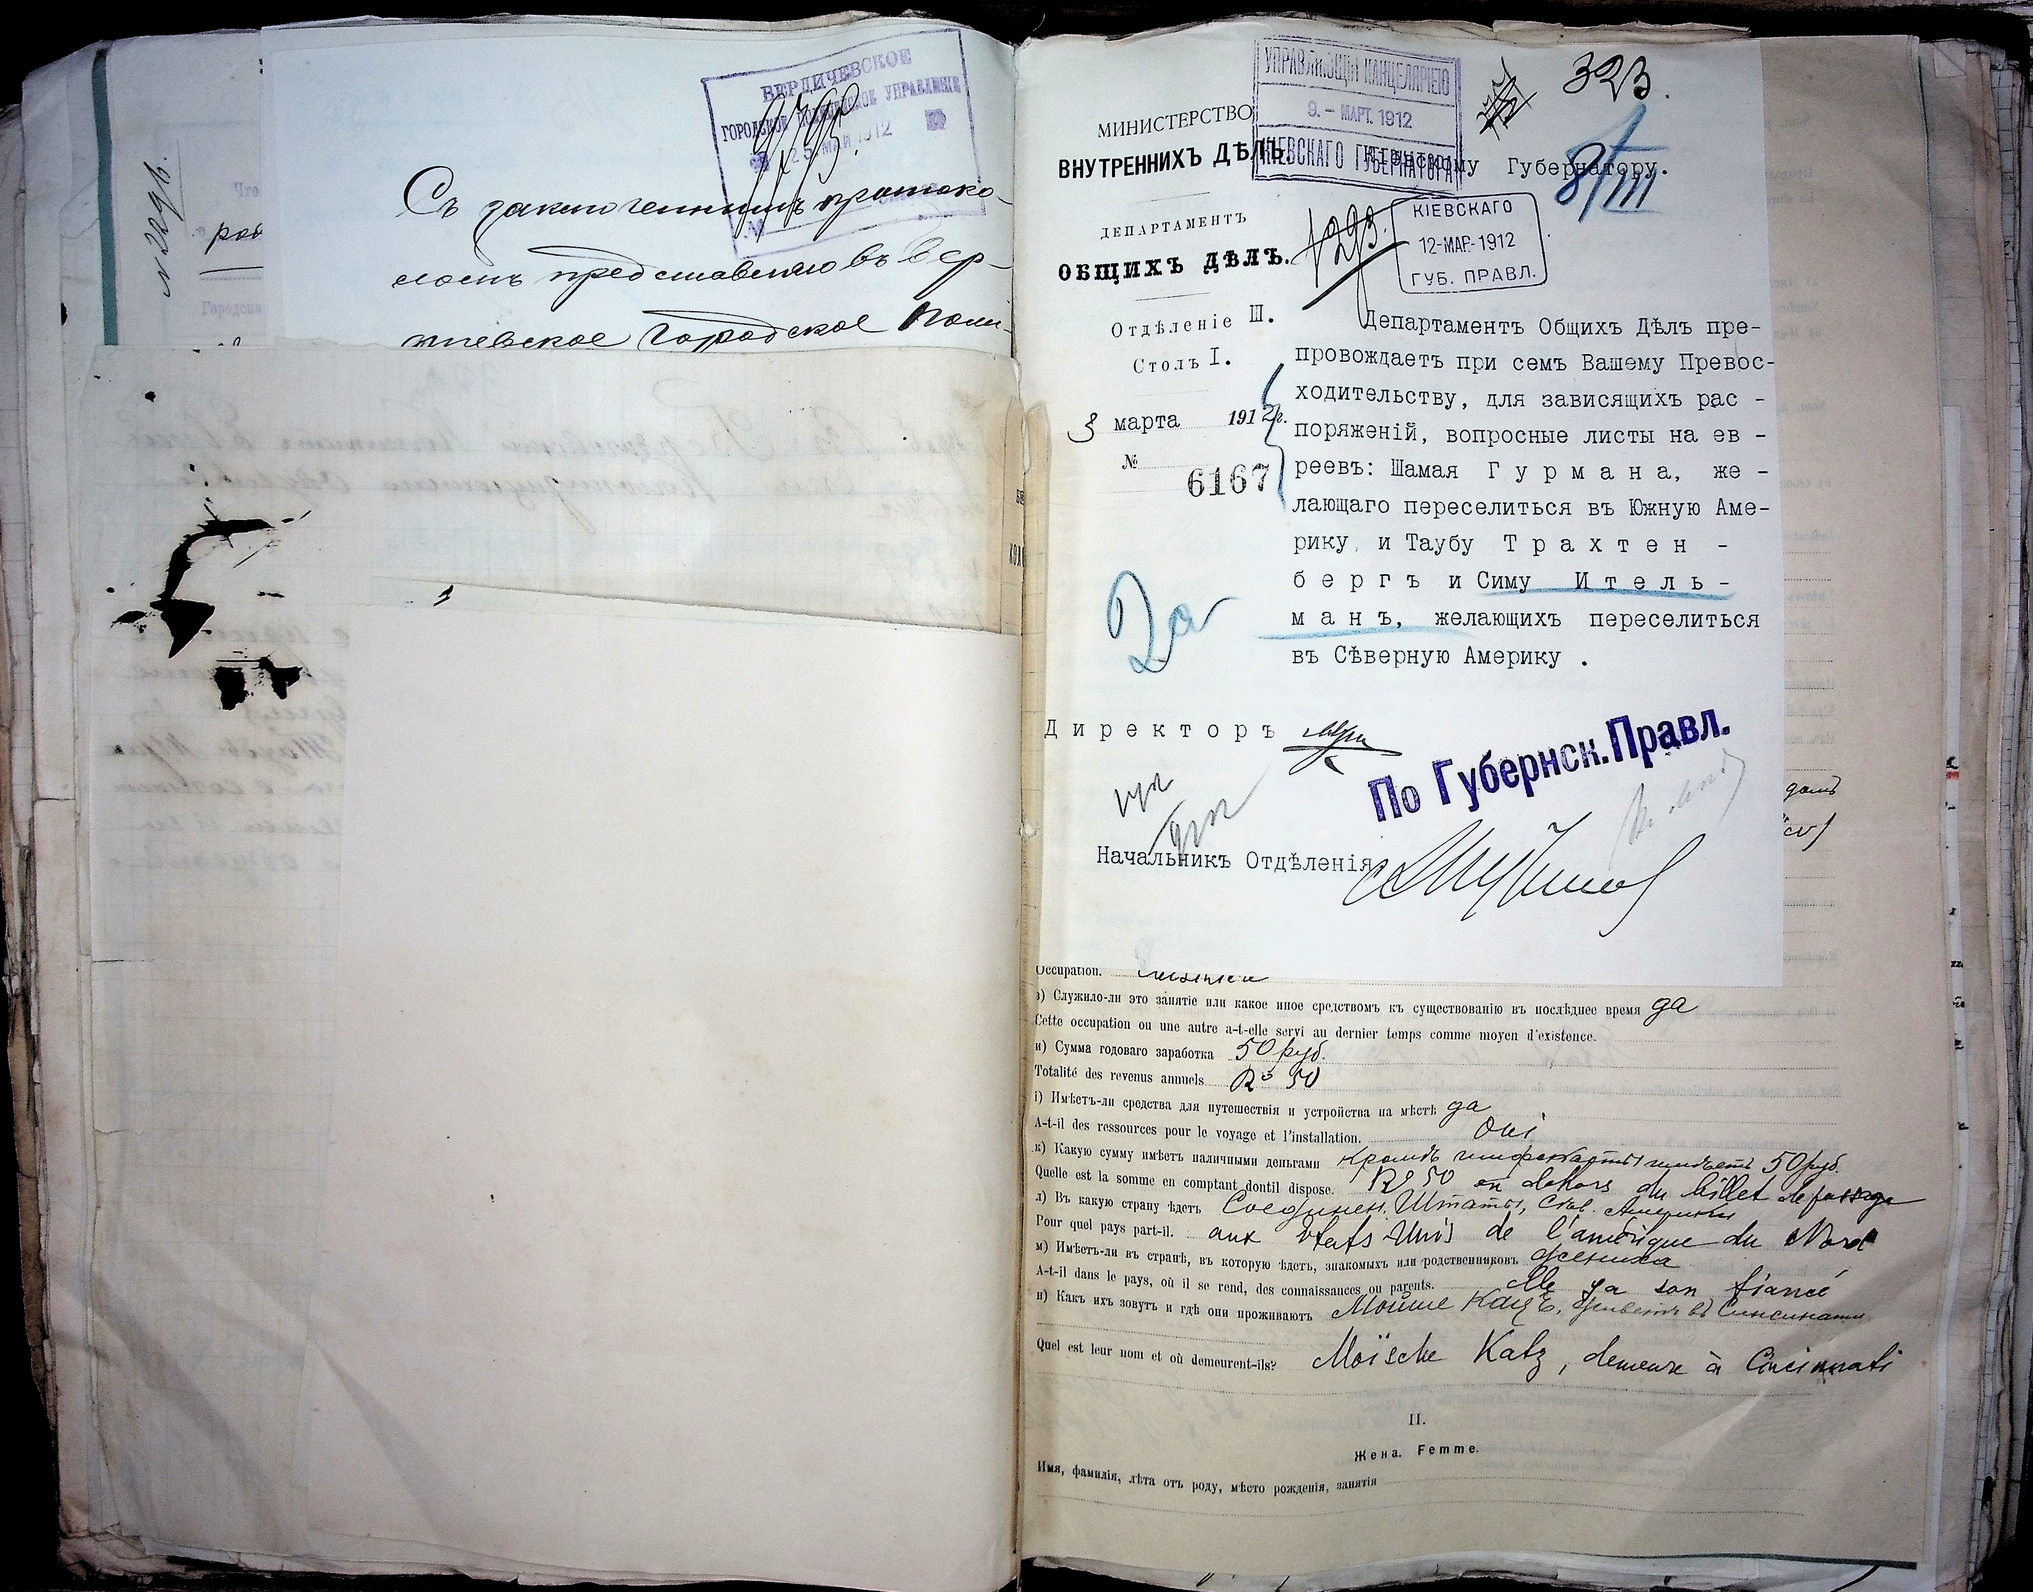 БЕРДИЧЕВСКОЕ
ГОРОДСКОЕ ПОЛИЦЕЙСКОЕ УПРАВЛЕНІЕ
25 МАЙ 1912
№
Съ заключеннымъ протоко-
ломъ представляю въ Бер-
городское Поли-
323.
УПРАВЛЯЮЩІЙ КАНЦЕЛЯРІЕЮ
9. - МАРТ. 1912
КІЕВСКАГО ГУБЕРНАТОРА
МИНИСТЕРСТВО
ВНУТРЕННИХЪ ДѢЛЪ.
Кіевскому Губернатору.
8/III
ДЕПАРТАМЕНТЪ
ОБЩИХЪ ДѢЛЪ.
1293
КІЕВСКАГО
12-МАР.-1912
ГУБ. ПРАВЛ.
Отдѣленіе III.
Столъ I.
3 марта 1912г.
№ 6167
Департаментъ Общихъ Дѣлъ пре-
провождаетъ при семъ Вашему Превос-
ходительству, для зависящихъ рас -
поряженій, вопросные листы на ев -
реевъ: Шамая Гурмана, же -
лающаго переселиться въ Южную Аме-
рику и Таубу Трахтен -
бергъ и Симу Итель -
манъ, желающихъ переселиться
въ Сѣверную Америку .
Директоръ
По Губернск. Правл.
Начальникъ Отдѣленія
Occupation.
з) Служило-ли это занятіе или какое иное средствомъ къ существованію въ послѣднее время да
Cette occupation ou une autre a-t-elle servi au dernier temps comme moyen d'existence.
и) Сумма годоваго заработка 50 руб.
Totalité des revenus annuels Rо 50
і) Имѣетъ-ли средства для путешествія и устройства на мѣстѣ да
A-t-il des ressources pour le voyage et l'installation. Oui
к) Какую сумму имѣетъ наличными деньгами кромѣ шифскарты имѣетъ 50 руб.
Quelle est la somme en comptant dontil dispose. Rо 50 en dehors du billet de passage
л) Въ какую страну ѣдетъ Соединен. Штаты, Сѣв. Америки
Pour quel pays part-il. aux Etats Unis de l'amérique du Nord
м) Имѣетъ-ли въ странѣ, въ которую ѣдетъ, знакомыхъ или родственниковъ жениха
A-t-il dans le pays, où il se rend, des connaissances ou parents. Elle y a son fiancé
н) Какъ ихъ зовутъ и гдѣ они проживаютъ Мойше Кацъ, живетъ въ Синсинати
Quel est leur nom et où demeurent-ils? Moïsche Katz, demeure à Cincinnati
II.
Жена. Femme.
Имя, фамилія, лѣта отъ роду, мѣсто рожденія, занятія